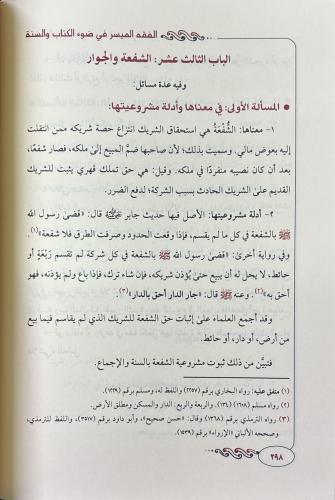 الفقه الميسر في ضوء الكتاب والسنة
الباب الثالث عشر: الشفعة والجوار
وفيه عدة مسائل:
المسألة الأولى: في معناها وأدلة مشروعيتها:
١- معناها: الشُّفْعَةُ هي استحقاق الشريك انتزاعَ حصة شريكه ممن انتقلت
إليه بعوض مالي. وسميت بذلك؛ لأن صاحبها ضمَّ المبيع إلى ملكه، فصار شفعاً،
بعد أن كان نصيبه منفردًا في ملكه. وقيل: هي حق تملك قهري يثبت للشريك
القديم على الشريك الحادث بسبب الشركة؛ لدفع الضرر.
٢- أدلة مشروعيتها: الأصل فيها حديث جابر رضي الله عنه قال: «قضى رسول الله
ﷺ بالشفعة في كل ما لم يقسم، فإذا وقعت الحدود وصرفت الطرق فلا شفعة»(١)
وفي رواية أخرى: «قضى رسول الله ﷺ بالشفعة في كل شركة لم تقسم رَبْعَةٍ أو
حائط، لا يحل له أن يبيع حتى يُؤذن شريكه، فإن شاء ترك، فإذا باع ولم يؤذنه، فهو
أحق به»(٢). وعنه ﷺ قال: «جار الدار أحق بالدار»(٣).
وقد أجمع العلماء على إثبات حق الشفعة للشريك الذي لم يقاسم فيما بيع
من أرض، أو دار، أو حائط.
فتبيَّن من ذلك ثبوت مشروعية الشفعة بالسنة والإجماع.
(١) متفق عليه: رواه البخاري برقم (٢٢٥٧) واللفظ له، ومسلم برقم (١٢٢٩).
(٢) رواه مسلم (١٦٠٨) (١٣٤). والربعة والربع: الدار والمسكن ومطلق الأرض.
(٣) رواه الترمذي برقم (١٣٦٨) وقال: «حسن صحيح»، وأبو داود برقم (٣٥١٧)، واللفظ للترمذي،
وصححه الألباني «الإرواء» برقم (١٥٣٩).
٢٩٨